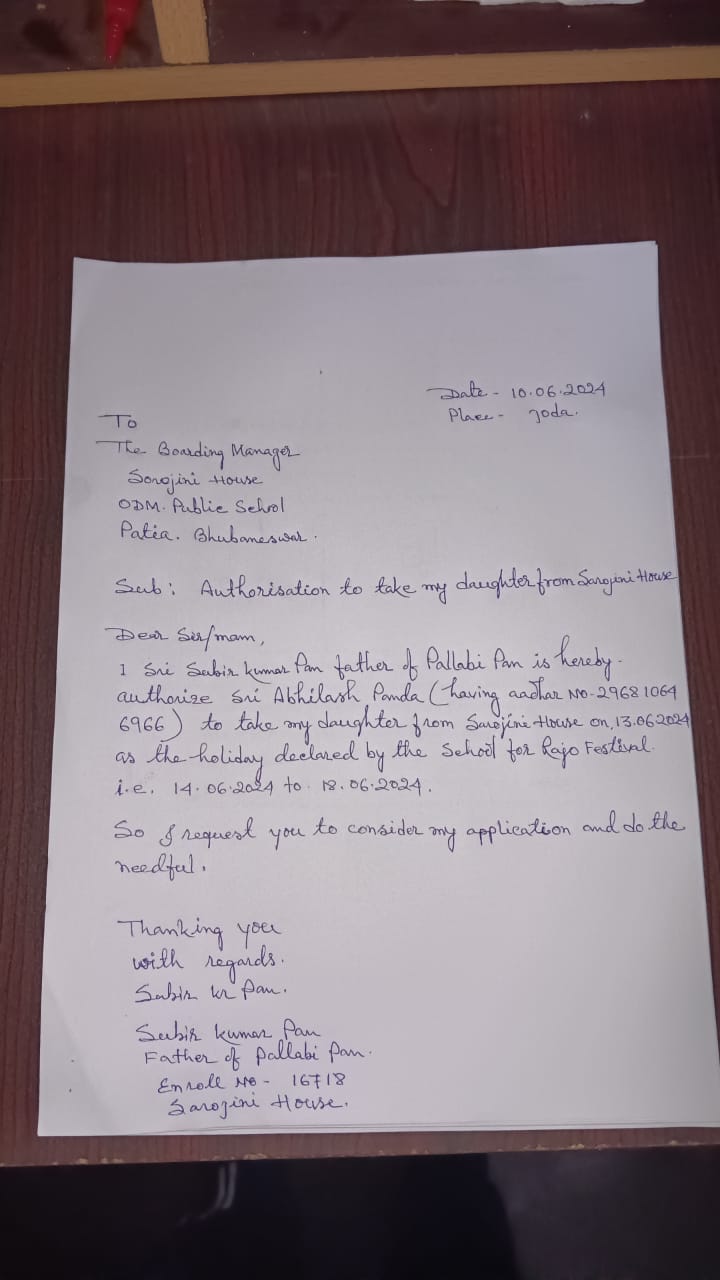 Date - 10.06.2024
Place - Joda.
To
The Boarding Manager
Sorojini House
ODM. Public School
Patia. Bhubaneswar.
Sub: Authorisation to take my daughter from Sarojini House
Dear Sir/mam,
I Sri Subir Kumar Pan father of Pallabi Pan is hereby.
authorize Sri Abhilash Panda (having aadhar No-29681064
6966) to take my daughter from Sarojini House on, 13.06.2024
as the holiday declared by the School for Rajo Festival.
i.e. 14.06.2024 to. 18.06.2024.
So I request you to consider my application and do the
needful.
Thanking you
with regards.
Subir kr Pan.
Subir Kumar Pan
Father of Pallabi Pan.
Enroll No - 16718
Sarojini House.